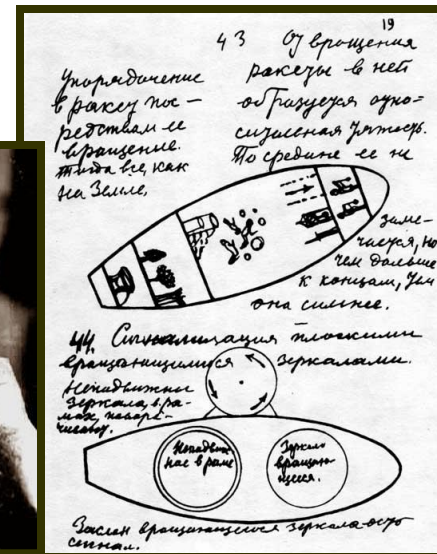 19
43 От вращения
ракеты в ней
образуется отно-
сительная тяжесть.
По средине ее не
заме-
чается, но
чем дальше
к концам, тем
она сильнее.
Упорядочение
в ракете пос-
редством ее
вращение.
тогда все, как
на Земле,
44. Сигнализация плоскими
вращающимися зеркалами.
Неподвижны
зеркала, в ра-
мах,
Неподвиж-
ное в раме
Зеркало
вращаю-
щееся.
Заслон вращающегося зеркала есть
сигнал.